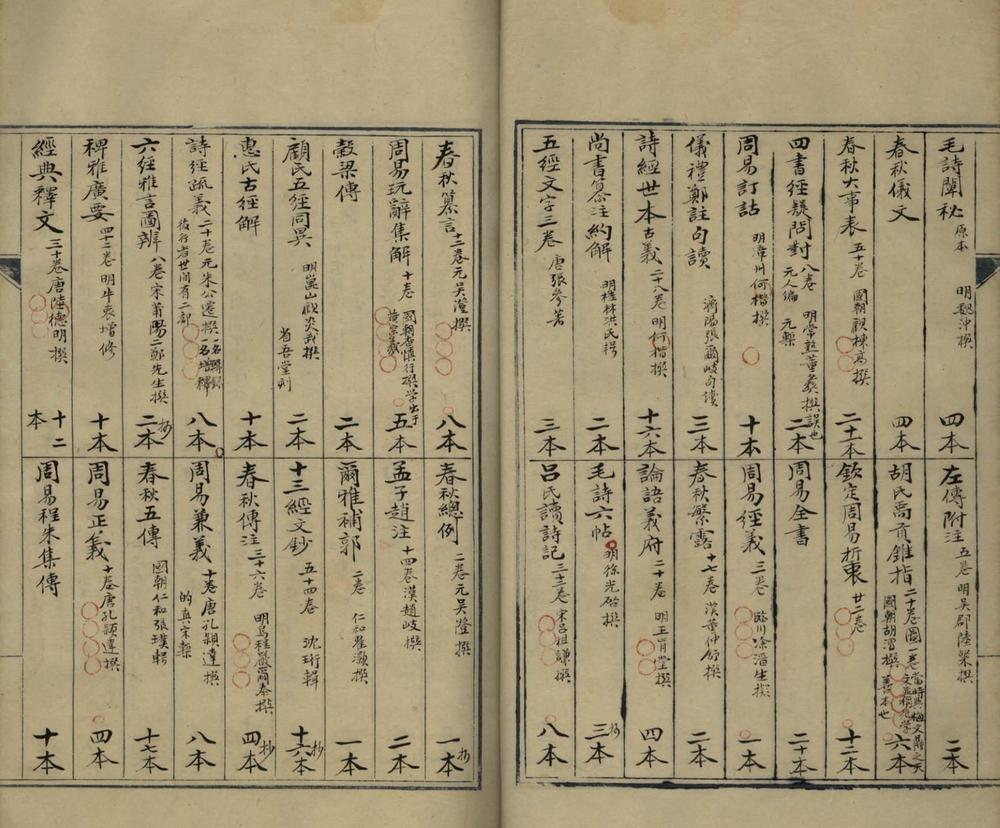 毛詩闡秘 原本 明魏沖撰 四本
春秋儀文 四本
春秋大事表 五十卷 國朝顧棟高撰 二十本
四書經疑問對 八卷 元人編 明常熟董彝撰誤也 元槧 二本
周易訂詁 明漳州何楷撰 十本
儀禮鄭註句讀 濟陽張爾岐句讀 三本
詩經世本古義 二十八卷 明何楷撰 十六本
尚書纂注約解 明 林洪氏輯 二本
五經文字三卷 唐張參著 三本
左傳附注 五卷 明吳郡陸粲撰 二本
胡氏禹貢錐指 二十卷圖一卷 國朝胡渭撰 善本也 六本
欽定周易折衷 廿二卷 十二本
周易全書 二十本
周易經義 三卷 臨川涂溍生撰 一本
春秋繁露 十七卷 漢董仲舒撰 二本
論語義府 二十卷 明王肯堂撰 四本
毛詩六帖 明徐光啓撰 抄 三本
呂氏讀詩記 三十二卷 宋呂祖謙撰 八本
春秋纂言 十二卷元吳澄撰 八本
周易玩辭集解 十卷 國朝查慎行撰學出于黃宗羲 五本
穀梁傳 二本
顧氏五經同異 明崑山顧炎武撰 省吾堂刻 二本
惠氏古經解 十本
詩經疏義 二十卷元朱公遷撰 一名輯錄 一名增釋 後行者世間有二部 八本
六經雅言圖辨 八卷宋莆陽二鄭先生撰 抄 二本
稗雅廣要 四十二卷 明牛衷增修 十本
經典釋文 三十卷唐陸德明撰 十二本
春秋總例 二卷元吳澄撰 抄 一本
孟子趙注 十四卷漢趙岐撰 二本
爾雅補郭 二卷 仁和翟灝撰 一本
十三經文鈔 五十四卷 沈珩輯 抄 十六本
春秋傳注 三十六卷 明烏程嚴爾泰撰 抄 四本
周易兼義 十卷唐孔穎達撰 的真宋槧 八本
春秋五傳 國朝仁和張璞輯 十七本
周易正義 十卷唐孔穎達撰 四本
周易程朱集傳 十本